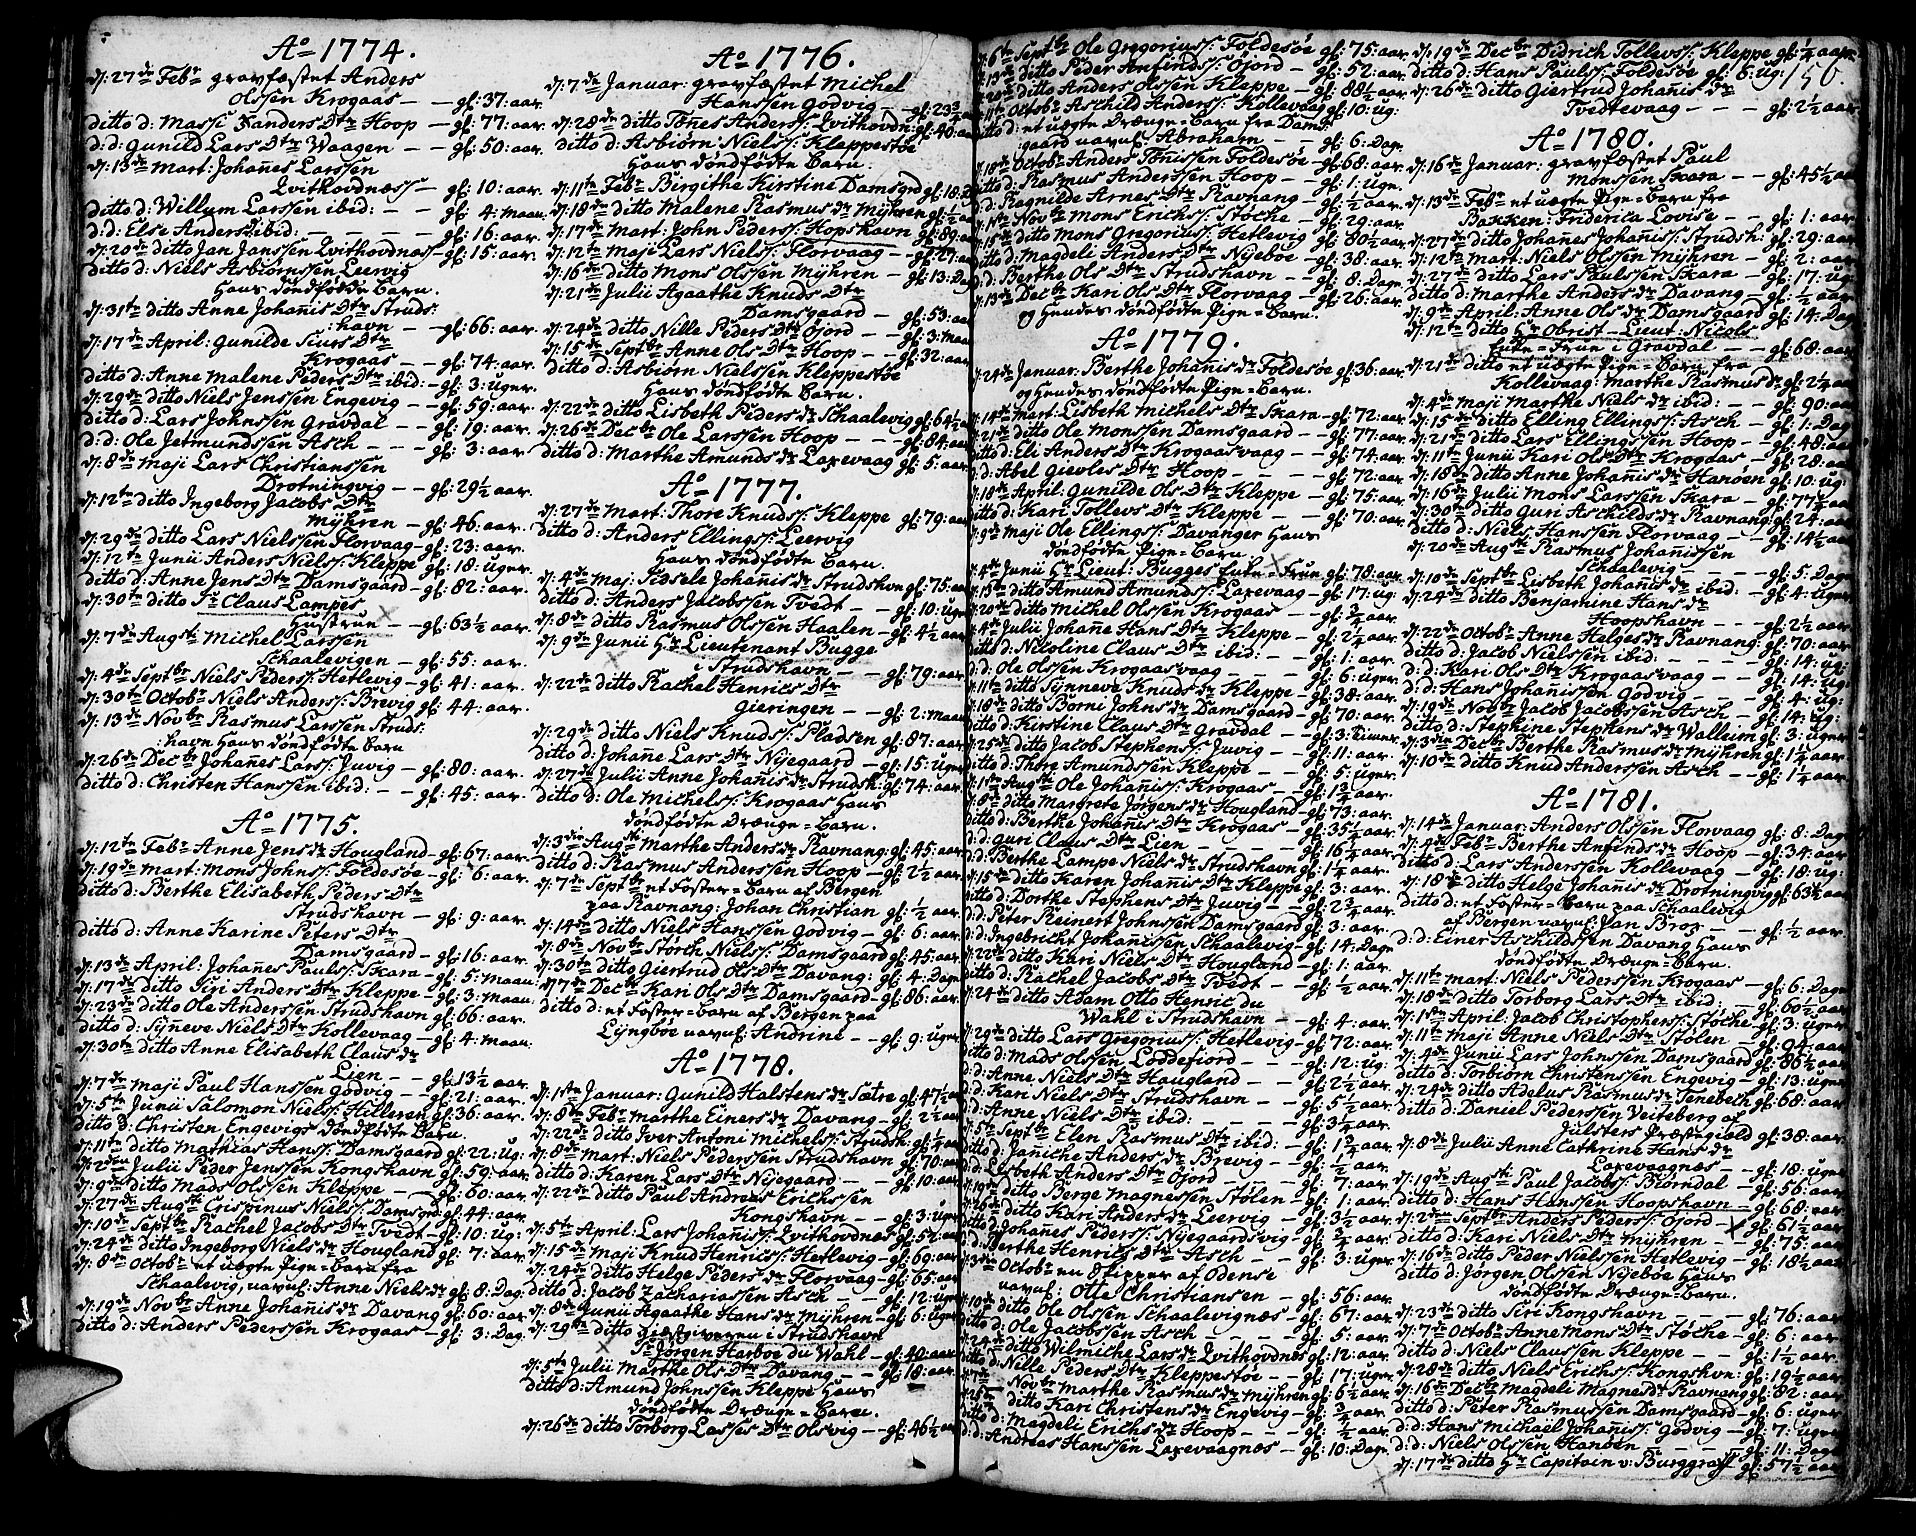 Ao 1774.
d: 27de Febr gravfæstet Anders
Olssen Krogaas — gl: 37: aar.
ditto d: Massi Sanders Dtr Hoop — gl: 77: aar.
d: d: Gunild Lars Dtr Waagen — gl: 50: aar.
d: 13de Mart: Johanes Larssen
Qvithovdnæss — gl: 10: aar.
ditto d: Willum Larssen ibid: — gl: 4: maan.
d: d: Else Anders: ibid: — gl: 16: aar.
d: 20de ditto Jan Janssen Qvithovdnæs — gl: 15: aar.
ditto d: Niels Asbiørnssen Leervig
Hans dødfødte Barn.
d: 31te ditto Anne Johanis Dtr Struds:
:havn — gl: 66: aar.
d: 17de April: Gunilde Siurs Dtr
Krogaas — gl: 74: aar.
ditto d: Anne Malene Peders Dtr ibid: gl: 3: uger.
d: 29de ditto Niels Jenssen Engevig — gl: 59: aar.
ditto d: Lars Johnssen Gravdal — gl: 19: aar.
d: d: Ole Jetmundssen Asch — gl: 3: aar.
d: 8de Maji Lars Christianssen
Drotningvig — gl: 29½ aar.
d: 12te ditto Ingeborg Jacobs Dtr
Mÿhren — gl: 46: aar.
d: 29de ditto Lars Nielssen Florvaag — gl: 23: aar.
d: 12te Junii Anders Niels: Kleppe gl: 18: uger.
ditto d: Anne Jens Dtr Damsgaard — gl: 82: aar.
d: 30te ditto Sr Claus Lampes
Hustrue — gl: 63½ aar.
d: 7de Augsti Michel Larssen
Schaalevigen — gl: 55: aar.
d: 4de Septbr Niels Peders: Hetlevig — gl: 41: aar.
d: 30te Octobr Niels Anders: Brevig gl: 44: aar.
d: 13de Novbr Rasmus Larssen Struds:
:havn Hans dødfødte Barn
d: 26de Decbr Johanes Lars: Juvig — gl: 80: aar.
ditto d: Christen Hanssen ibid: — gl: 45: aar.
Ao 1775.
d: 12te Febr Anne Jens dr Hougland — gl: 67: aar.
d: 19de Mart: Mons Johns: Foldesøe — gl: 6: aar.
ditto d: Berthe Elisabeth Peders Dtr
Strudshavn — gl: 9: aar.
ditto d: Anne Karine Peters Dtr
Damsgaard — gl: 16: aar.
d: 13de April: Johanes Pauls: Skara — gl: 5: maan.
d: 17de ditto Siri Anders Dtr Kleppe — gl: 3: maan.
d: 23de ditto Ole Anderssen Strudshavn gl: 66: aar.
ditto d: Sÿneve Niels Dtr Kollevaag — gl: 4: maan.
d: 30te ditto Anne Elisabeth Claus dr
Lien — gl: 13½ aar.
d: 7de Maji Paul Hanssen Godvig — gl: 21: aar.
d: 5te Junii Salomon Niels: Hilleren gl: 36: aar.
ditto d: Christen Engevigs dødfødte Barn.
d: 11te ditto Mathias Hans: Damsgaard gl: 22: ug:
d: 2den Julii Peder Jenssen Kongshavn gl: 59: aar.
d: 9de ditto Mads Olssen Kleppe — gl: 60: aar.
d: 27de Augsti Crispinus Niels: Damsgrd: gl: 44: aar.
d: 10de Septbr Rachel Jacobs Dtr Tvedt — gl: 10: ug:
d: 24de ditto Ingeborg Niels dr Hougland gl: 7: aar.
d: 8de Octobr et uægte Pige-Barn fra
Schaalevig, navnl: Anne Niels dr gl: 8: Dag.
d: 19de Novbr Anne Johanis dr Davang gl: 60: aar.
ditto d: Anders Pederssen Krogaas — gl: 3: Dag.
Ao 1776.
d: 7de Januar: gravfæstet Michel
Hanssen Godvig — gl: 23¾
d: 28de ditto Tønes Anders: Qvithovdn: gl: 40: aar
ditto d: Asbiørn Niels: Kleppestøe
Hans dødfødte Barn.
d: 11te Febr Birgithe Kirstine Damsgrd gl: 18:
d: 18de ditto Malene Rasmus dr Mÿhren gl: ½ aar
d: 17de Mart: John Peders: Hopshavn gl: 89: aar
d: 12te Maji Lars Niels: Florvaag — gl: 27: aar
d: 16de ditto Mons Olssen Mÿhren — gl: 13: Dag
d: 21de Julii Agaathe Knuds Dtr
Damsgaard — gl: 53: aar
d: 24de ditto Nille Peders Dtr Øjord — gl: 3: maan
d: 15de Septbr Anne Ols Dtr Hoop — gl: 32: aar
ditto d: Asbiørn Nielssen Kleppestøe
Hans dødfødte Barn.
d: 22de ditto Lisbeth Peders dr Schaalevig gl: 64½
d: 26de Decbr Ole Larssen Hoop — gl: 84: aar.
ditto d: Marthe Amunds dr Laxevaag gl: 5: aar
Ao 1777.
d: 27de Mart: Thore Knuds: Kleppe gl: 79: aar
ditto d: Anders Ellings: Leervig
Hans dødfødte Barn.
d: 4de Maj: Sissele Johanis dr Strudshvn gl: 75: aar
ditto d: Anders Jacobssen Tvedt — gl: 10: uger
d: 8de ditto Rasmus Olssen Haalen — gl: 4½ aar
d: 9de Junii Hr Lieutenant Bugge
i Strudshavn — gl: 79: aar
d: 22de ditto Rachel Henrics Dtr
Gieringen — gl: 2: maan
d: 29de ditto Niels Knuds: Pladsen gl: 87: aar
ditto d: Johane Lars Dtr Nijegaard — gl: 15: uger
d: 27de Julii Anne Johanis dr Strudsh: gl: 74: aar.
ditto d: Ole Michels: Krogaas Hans
dødfødte Drænge-Barn.
d: 3die Augsti Marthe Anders dr Ravnang: gl: 45: aar
ditto d: Rasmus Anderssen Hoop — gl: 2½ aar.
d: 7de Septbr et Foster-Barn af Bergen
paa Ravnang: Johan Christian gl: ½ aar.
d: 14de ditto Niels Hanssen Godvig — gl: 6: aar.
d: 8de Novbr Storch Niels: Damsgaard gl: 45: aar.
d: 30te ditto Giertrud Ols Dtr Davang: gl: 4: Dage
d: 7de Decbr Kari Ols Dtr Damsgaard — gl: 86: aar.
ditto d: et Foster-Barn af Bergen paa
Lÿngbøe navnl: Andrine — gl: 9: uger
Ao 1778.
d: 1ste Januar: Gunild Halstens dr Sætre gl: 47½ aar
d: 8de Febr Marthe Einers dr Davang — gl: 2½ aar
d: 22de ditto Iver Antoni Michels: Strudsh: gl: ¼ aar
d: 8de Mart: Niels Pederssen Strudshavn gl: 70: aar
ditto d: Karen Lars Dtr Nijegaard — gl: 10: aar
d: 22de ditto Paul Andreas Erichssen
Kongshavn — gl: 3: uger
d: 5te April: Lars Johanis: Qvithovdnæs gl: 57: aar
d: 15de Maji Knud Henrics: Hetlevig — gl: 69: aar
d: 24de ditto Helge Peders dr Florvaag — gl: 65: aar
ditto d: Jacob Zachariassen Asch — gl: 12: uger
d: 8de Junii Agaathe Hans dr Mÿhren — gl: 6: uger
d: 29de ditto Giæstgiveren i Strudshavn
Sr Jørgen Harboe du Wahl — gl: 40: aar
d: 5te Julii Marthe Ols Dtr Davang — gl: 18: aar.
ditto d: Amund Johnssen Kleppe Hans
dødfødte Drænge-Barn.
d: 26de ditto Torborg Lasses Dtr Olsvig — gl: 46½ aar
d: 6te Septbr Ole Gregorius: Foldesøe gl: 75: aar.
d: 13de ditto Peder Anfinds: Øjord — gl: 52: aar.
d: 20de ditto Anders Olssen Kleppe — gl: 80½ aar.
d: 11te Octobr Aschild Anders: Kollevaag gl: 10: ug:
ditto d: et uægte Drænge-Barn fra Dams:
:gaard navnl: Abraham — gl: 6: Dage.
d: 18de Octobr Anders Tønissen Foldesøe — gl: 68: aar.
ditto d: Rasmus Anderssen Hoop — gl: 1: uge.
d: d: Ragnilde Arnes Dtr Ravnang — gl: ½ aar.
d: 1ste Novbr Mons Erichs: Støche — gl: 29: aar.
d: 15de ditto Mons Gregorius: Hetlevig gl: 80½ aar.
ditto d: Magdeli Anders Dtr Nijebøe — gl: 38: aar.
d: d: Berthe Ols Dtr Strudshavn — gl: 8: Dage.
d: 13de Decbr Kari Ols Dtr Florvaag — gl: 26: aar.
og Hendes dødfødte Pige-Barn.
Ao 1779.
d: 24de Januar: Berthe Johanis dr Foldesøe gl: 36: aar.
og Hendes dødfødte Pige-Barn.
d: 14de Mart: Lisbeth Michels Dtr Skara — gl: 72: aar.
d: 21de ditto Ole Monssen Damsgaard — gl: 77: aar.
ditto d: Eli Anders Dtr Krogaasvaag — gl: 74: aar.
d: d: Abel Gievles Dtr Hoop — gl: 72: aar.
d: 18de April: Gunilde Ols Dtr Kleppe — gl: 75: aar.
ditto d: Kari Tollevs Dtr Kleppe — gl: 70: aar.
d: 9de Maji Ole Ellings: Davanger Hans
dødfødte Pige-Barn.
d: 4de Junii Hr Lieut: Bugges Enke-Frue gl: 78: aar.
d: 13de ditto Amund Amunds: Laxevaag — gl: 17: ug:
d: 20de ditto Michel Olssen Krogaas — gl: ¾ aar.
d: 4de Julii Johane Hans Dtr Kleppe — gl: 2¼ aar.
ditto d: Nicoline Claus Dtr ibid: — gl: 1: aar.
d: d: Ole Olssen Krogaasvaag — gl: 6: uger.
d: 11te ditto Sÿnneve Knuds dr Kleppe — gl: 38: aar.
d: 18de ditto Borni Johns dr Damsgaard — gl: 70: aar.
ditto d: Kirstine Claus Dtr Gravdal — gl: 3: Timer.
d: 25de ditto Jacob Stephens: Juvig — gl: 11: aar.
ditto d: Thore Amundssen Kleppe — gl: 5: uger.
d: 1ste Augsti Ole Johanis: Krogaas — gl: ¾ aar.
d: 8de ditto Margrete Jørgens dr Hougland — gl: 73: aar.
ditto d: Berthe Johanis Dtr Krogaas — gl: 35½ aar.
d: d: Guri Claus Dtr Lien — gl: 16¼ aar.
d: d: Berthe Lampe Niels dr Strudshavn gl: 1¼ aar.
d: 15de ditto Karen Johanis Dtr Kleppe gl: 3: aar.
ditto d: Dorthe Stephens Dtr Juvig — gl: 2¾ aar.
d: d: Peter Reinert Johnssen Damsgaard gl: 3: aar.
d: d: Ingebricht Johanissen Schaalevig gl: 14: Dage
d: 22de ditto Kari Niels Dtr Hougland — gl: 1: aar.
ditto d: Rachel Jacobs Dtr Tvedt — gl: ½ aar.
d: 24de ditto Adam Otto Henric du
Wahl i Strudshavn — gl: 4: aar.
d: 29de ditto Lars Gregorius: Hetlevig — gl: 72: aar.
ditto d: Mads Olssen Loddefiord — gl: 12: ug:
d: d: Anne Niels Dtr Hougland — gl: 2½ aar.
d: d: Kari Niels Dtr Strudshavn — gl: 5½ aar.
d: d: Anne Niels Dtr ibid: — gl: 3¼ aar.
d: 5te Septbr Elen Rasmus Dtr ibid: — gl: 1¾ aar.
ditto d: Janiche Anders dr Brevig — gl: ½ aar.
d: d: Lisbeth Anders Dtr Øjord — gl: 7: aar.
d: 19de ditto Berge Magnessen Stølen — gl: 1: aar.
d: 26de ditto Kari Anders dr Leervig — gl: 3½ aar.
ditto d: Johanes Peders: Nijegaardsvig — gl: ¾ aar.
d: d: Berthe Henrics Dtr Asch — gl: 3: uger.
d: 3die Octobr en Skipper af Odense
navnl: Otte Christiansen — gl: 56: aar.
d: 10de ditto Ole Olssen Schaalevignæs — gl: 67: aar.
ditto d: Ole Jacobssen Asch — gl: 5: aar.
d: 24de ditto Wilmiche Lars dr Qvithovdnæs gl: 12: aar.
ditto d: Nille Peders Dtr Kleppestøe — gl: 17: uger.
d: 7de Novbr Marthe Rasmus dr Mÿhren gl: 6½ aar.
d: 25de ditto Kari Christens dr Engevig — gl: ¾ aar.
ditto d: Magdeli Erichs dr Hoop — gl: 4: aar.
d: d: Andreas Hanssen Laxevaagnæs — gl: 10: Dage.
d: 19de Decbr Didrich Tollevs: Kleppe gl: ¼ aar.
ditto d: Hans Pauls: Foldesøe gl: 6: ug:
156.
d: 26de ditto Giertrud Johanis dr
Tvedtevaag — gl: 2½ aar.
Ao 1780.
d: 16de Januar: gravfæstet Paul
Monssen Skara — gl: 45½ aar
d: 13de Febr et uægte Pige-Barn fra
Bakken: Friderica Lovise — gl: 1: aar.
d: 27de ditto Johanes Johanis: Strudsh: gl: 29: aar.
d: 12te Mart: Niels Olssen Mÿhren — gl: 2: aar.
d: 27de ditto Lars Paulssen Skara — gl: 17: ug:
ditto d: Marthe Anders dr Davang — gl: ½ aar
d: 9de April: Anne Ols dr Damsgaard gl: 14: Dag
d: 12te ditto Hr Obrist-Lieut: Nicols
Enke-Frue i Gravdal — gl: 68: aar
d: 21de ditto et uægte Pige-Barn fra
Kollevaag: Marthe Rasmus dr gl: 2¼ aar
d: 4de Maji Marthe Niels dr ibid: — gl: 90: aar
d: 15de ditto Elling Ellings: Asch — gl: 1: Dag
d: 21de ditto Lars Ellingssen Hoop — gl: 48: aar
d: 11te Junii Kari Ols Dtr Krogaas — gl: 28: aar
d: 18de ditto Anne Johanis dr Hanøen gl: 10: ug:
d: 16de Julii Mons Larssen Skara — gl: 77½ aar
d: 30te ditto Guri Aschilds dr Ravnang gl: 24: aar
ditto d: Niels Hanssen Florvaag — gl: 14½ aar
d: 20de Augsti Rasmus Johanissen
Schaalevig — gl: 5: Dage
d: 10de Septbr Lisbeth Johanis dr ibid: — gl: 4: uger
d: 24de ditto Benjamine Hans dr
Hoopshavn — gl: 2½ aar
d: 22de Octobr Anne Helges dr Ravnang: gl: 70: aar
ditto d: Jacob Nielssen ibid: — gl: 14: ug:
d: d: Kari Ols Dtr Krogaasvaag — gl: 14: ug:
d: d: Hans Johanissen Godvig — gl: 4: ug:
d: 19de Novbr Jacob Jacobssen Asch — gl: 14: ug:
ditto d: Stephine Stephens dr Wallum gl: 3: uger
d: 3die Decbr Berthe Rasmus dr Mÿhren gl: 1¼ aar
d: 10de ditto Knud Anderssen Asch — gl: 1¼ aar
Ao 1781.
d: 14de Januar: Anders Olssen Florvaag gl: 8: Dage
d: 4de Febr Berthe Anfinds dr Hoop — gl: 34: aar.
ditto d: Lars Anderssen Kollevaag — gl: 18: ug:
d: 18de ditto Helge Johanis dr Drotningvig gl: 63½ aar
ditto d: et Foster-Barn paa Schaalevig
af Bergen navnl: Jan Brox — gl: ½ aar.
d: d: Einer Aschildssen Davang Hans
dødfødte Drænge-Barn.
d: 11te Mart: Niels Pederssen Krogaas — gl: 6: Dage
d: 18de ditto Torborg Lars Dtr ibid: — gl: 60½ aar
d: 1ste April: Jacob Christophers: Støche gl: 3: uger
d: 11te Maji Anne Niels Dtr Stølen — gl: 94: aar.
d: 4de Junii Lars Johnssen Damsgaard gl: 86½ aar
ditto d: Torbiørn Christenssen Engevig — gl: 13: uger
d: 24de ditto Adelus Rasmus dr Tenebech gl: 68: aar.
ditto d: Daniel Pederssen Veiteberg af
Jülsters Præstegield gl: 38: aar.
d: 8de Julii Anne Cathrine Hans dr
Laxevaagnæs — gl: 18: uger
d: 19de Augsti Paul Jacobs: Biørndal — gl: 56: aar.
ditto d: Hans Hanssen Hoopshavn — gl: 68: aar.
d: 2den Septbr Anders Peders: Øjord — gl: 61½ aar
ditto d: Kari Niels Dtr Mÿhren — gl: 75: aar
d: 16de ditto Peder Nielssen Hetlevig — gl: 18½ aar
ditto d: Jørgen Olssen Nijebøe Hans
dødfødte Drænge-Barn.
d: 23de ditto Siri Kongshavn — gl: 76: aar
d: 7de Octobr Anne Mons Dtr Støche — gl: 6: aar
ditto d: Niels Claussen Kleppe — gl: 1½ aar.
d: 28de ditto Niels Erichs: Kongshvn: gl: 19½ aar
d: 16de Decbr Magdeli Magnes dr Ravnang gl: 82: aar
ditto d: Peter Rasmussen Damsgaard — gl: 6: uger
d: d: Hans Michael Johanis: Godvig — gl: 7: uger
d: d: Niels Olssen Hanøen — gl: 11: Dage
d: 17de ditto Hr Capitain v: Burggraff gl: 57½ aar